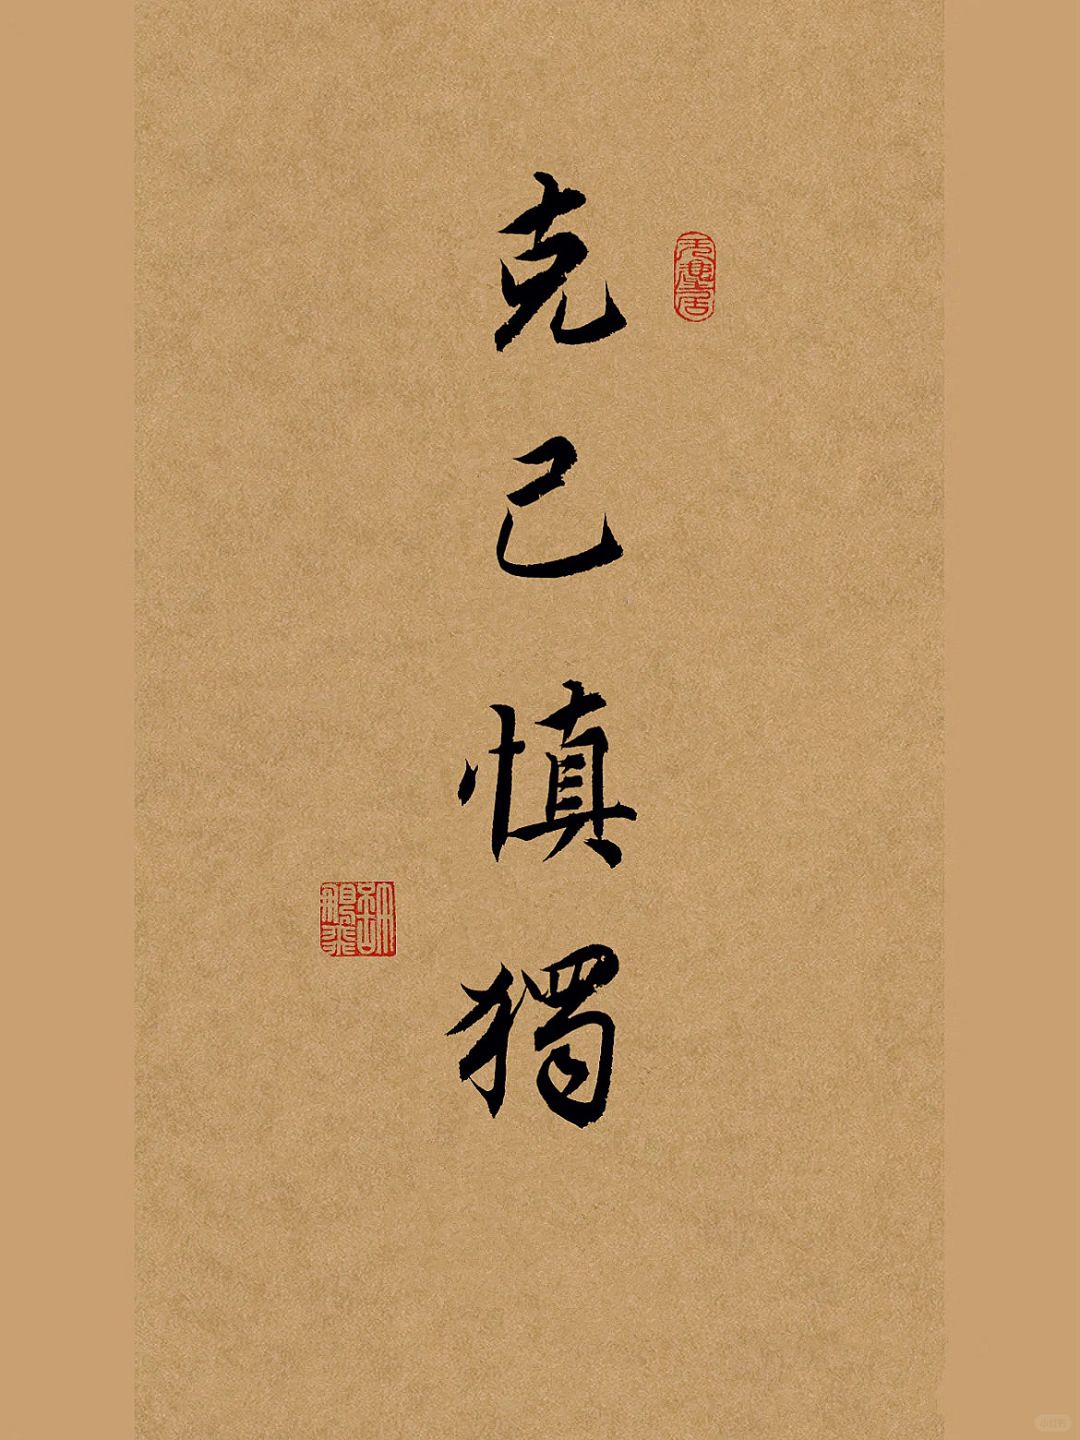 克己慎獨